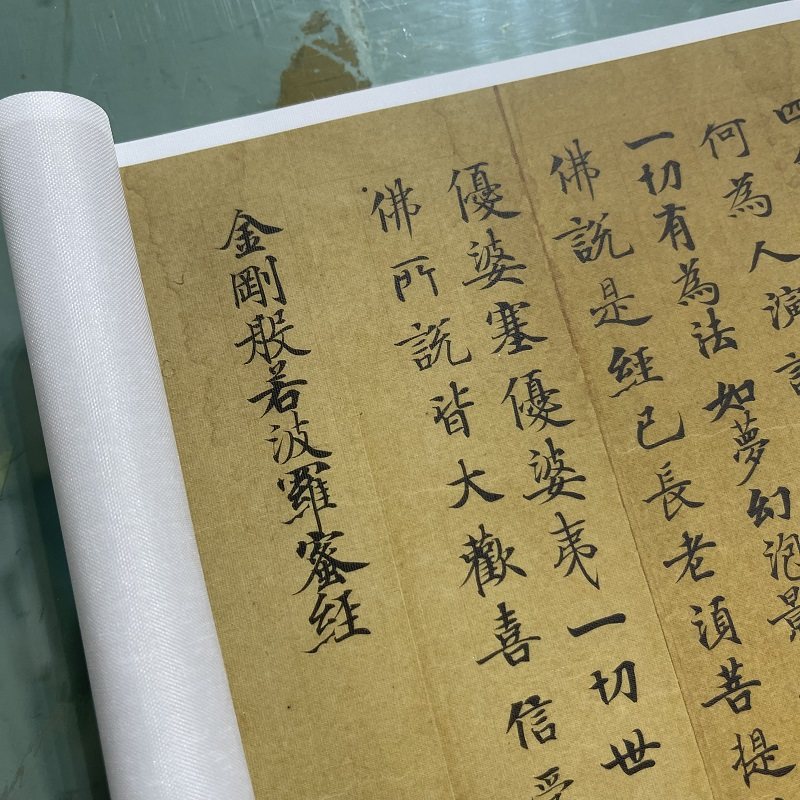 四
何為人演說
一切有為法如夢幻泡影
佛說是經已長老須菩提
優婆塞優婆夷一切世
佛所說皆大歡喜信受
金剛般若波羅蜜經